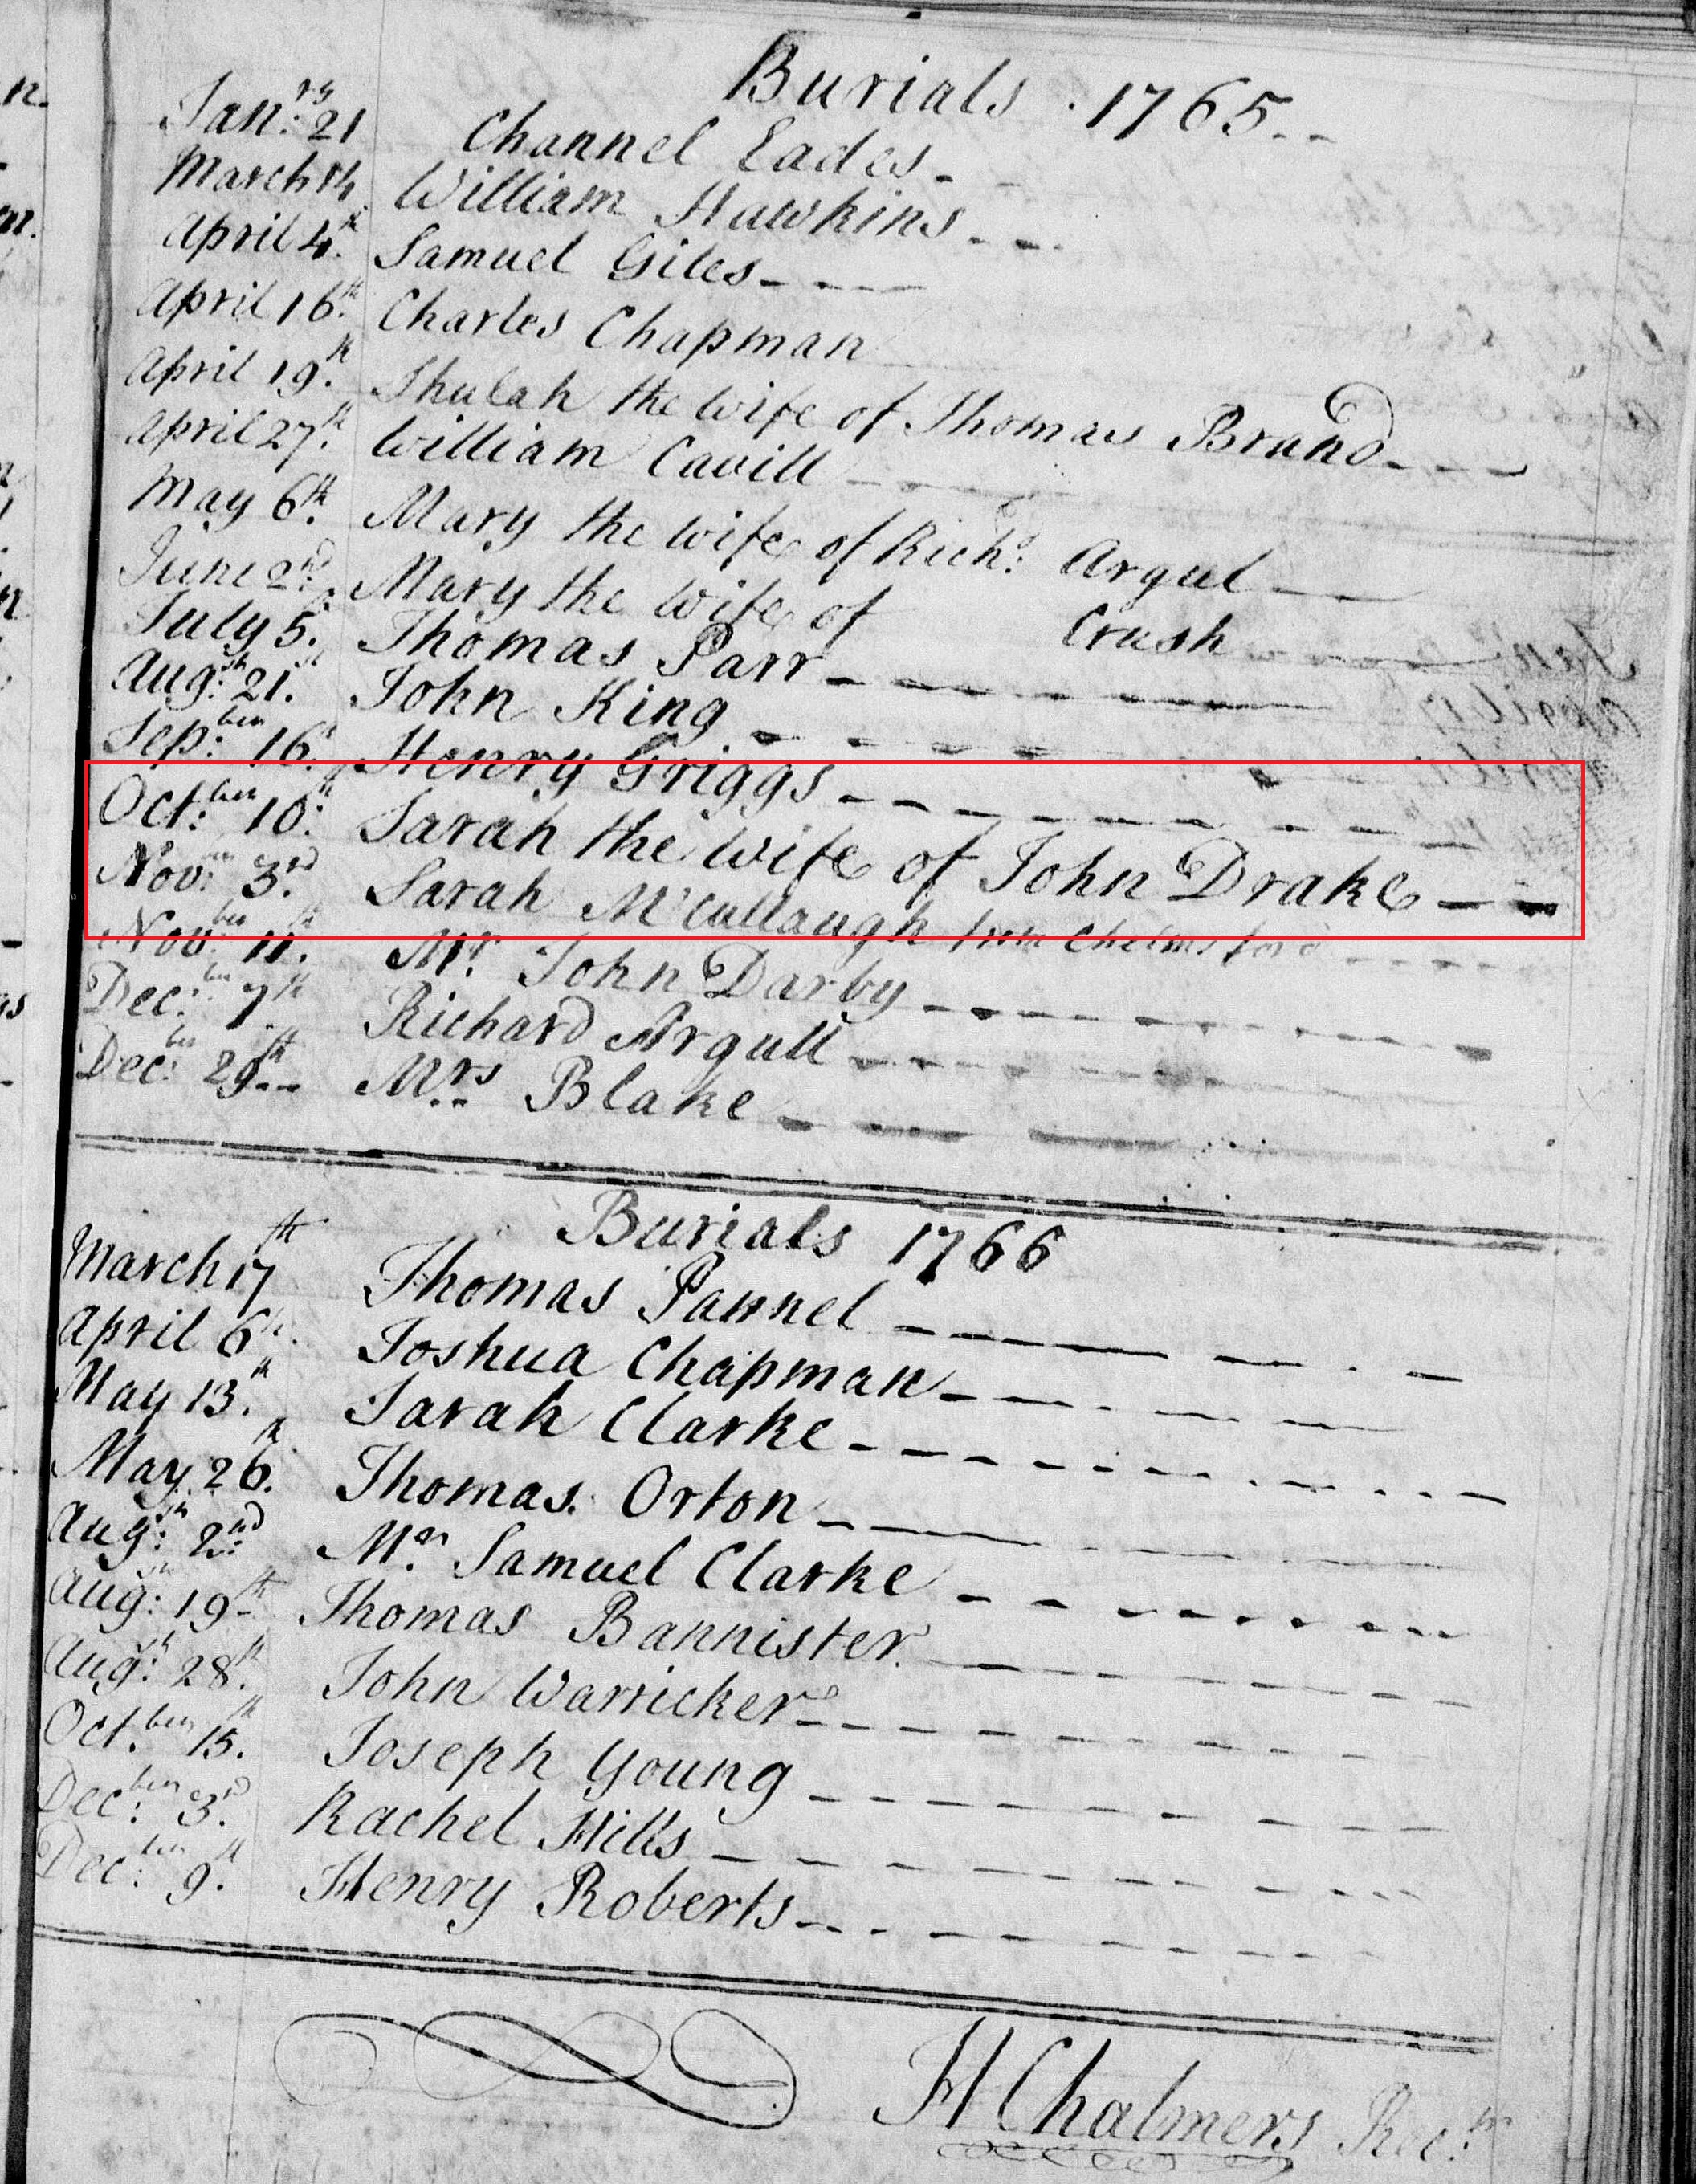 Burials 1765
Jan:ry 21 Channel Eades
March 14 William Hawkins
April 4th Samuel Giles
April 16th Charles Chapman
April 19th Thulah the wife of Thomas Brand
April 27th William Cavill
May 6th Mary the wife of Richd: Argul
June 2nd Mary the wife of Crush
July 5th Thomas Parr
Aug:st 21st John King
Sep:ber 16th Henry Griggs
Oct:ber 10th Sarah the wife of John Drake
Nov:ber 3rd Sarah McCullaugh from Chelmsford
Nov:ber 11th Mr John Darby
Dec:ber 7th Richard Argull
Dec:ber 29th Mrs Blake
Burials 1766
March 17th Thomas Pannel
April 6th Joshua Chapman
May 13th Sarah Clarke
May 26th Thomas Orton
Aug:st 2nd Mr Samuel Clarke
Aug:st 19th Thomas Bannister
Aug:st 28th John Warricker
Oct:ber 15th Joseph Young
Dec:ber 3rd Rachel Hills
Dec:ber 9th Henry Roberts
H Chalmers Rec:tr